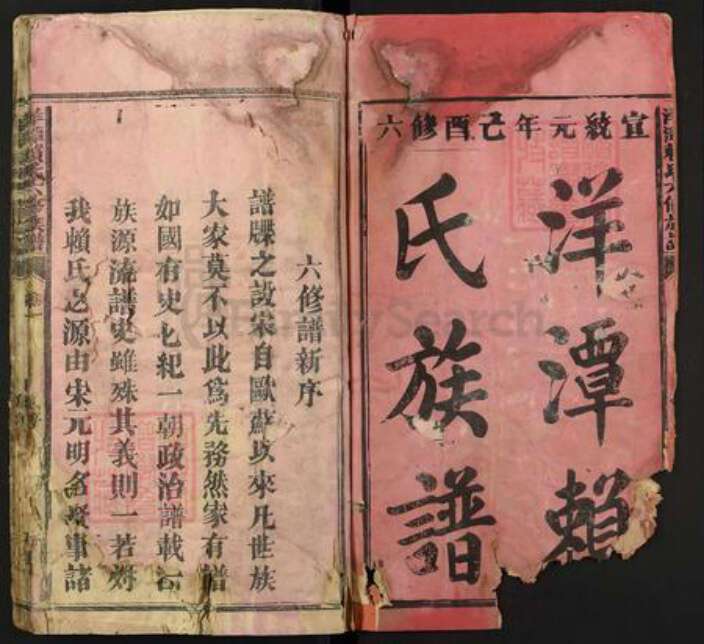 宣統元年己酉修六
洋潭賴
氏族譜
六修譜新序
譜牒之設宋自歐蘇以來凡世族
大家莫不以此爲先務然家有譜
如國有史七紀一朝政治譜載
族源流譜史雖殊其義則一若
我賴氏之源由宋元明名事諸
FamilySearch